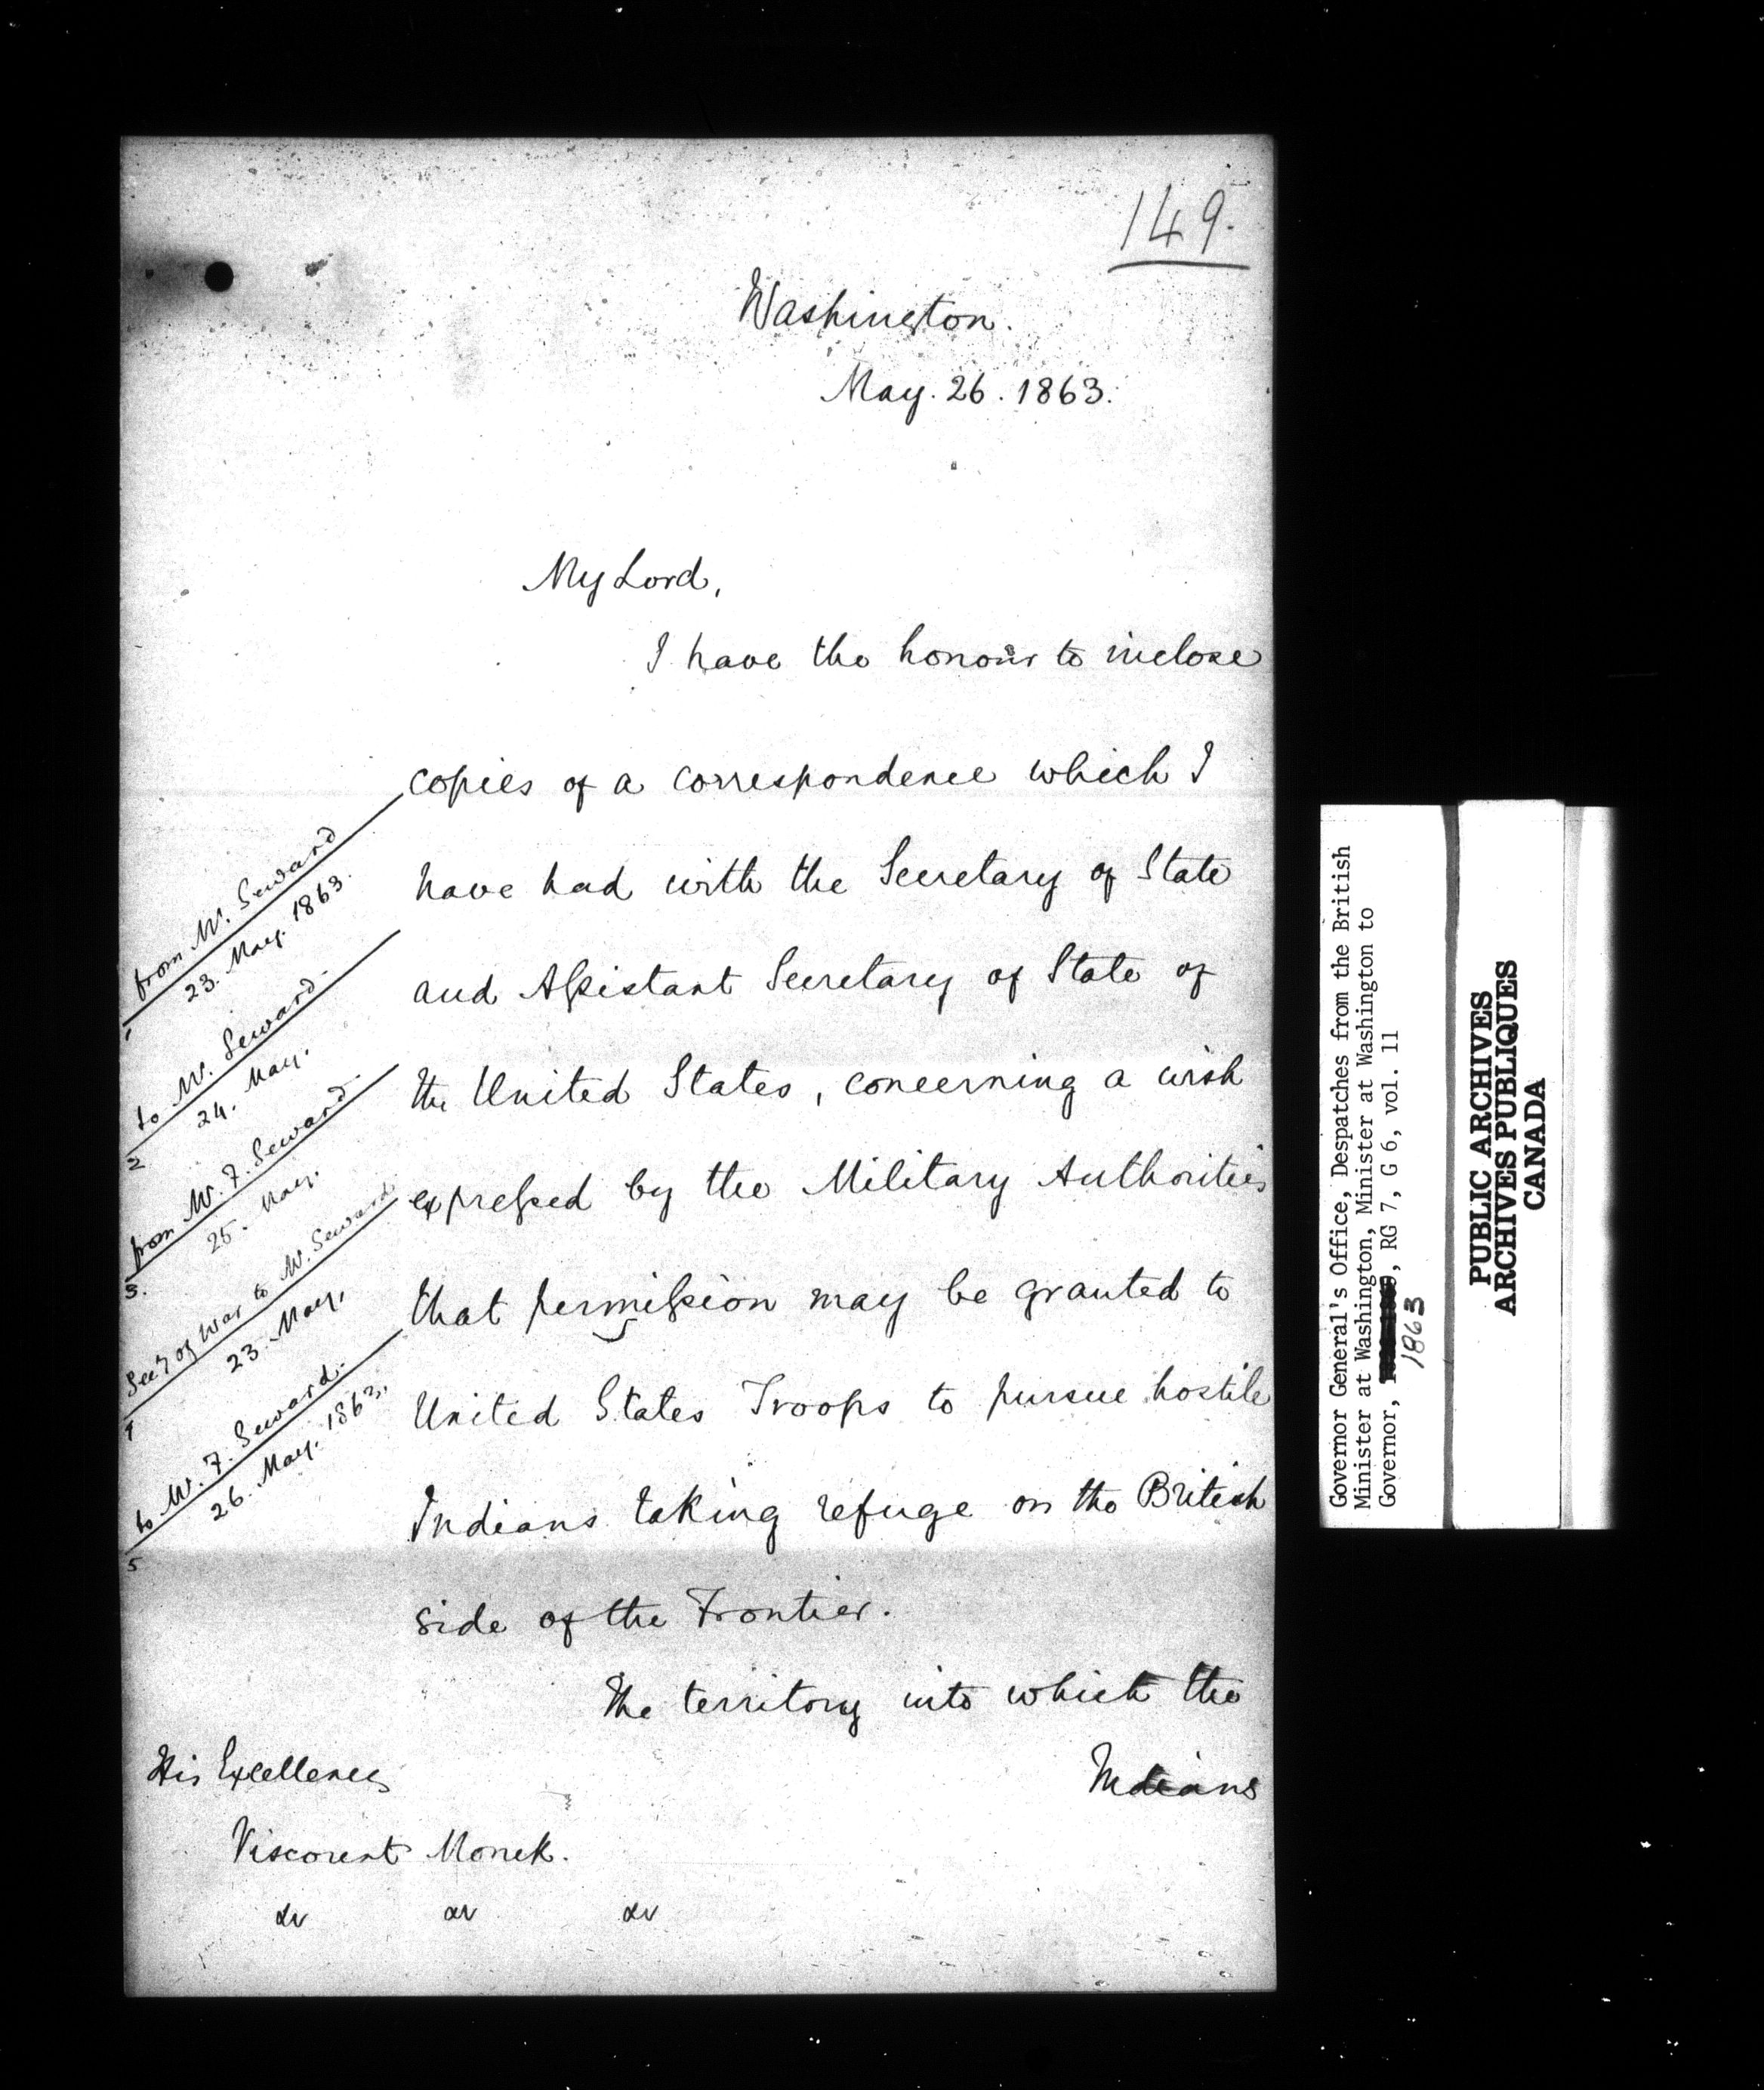 149.
Washington.
May. 26. 1863.
My Lord,
I have the honour to inclose
copies of a correspondence which I
have had with the Secretary of State
and Assistant Secretary of State of
the United States, concerning a wish
expressed by the Military Authorities
that permission may be granted to
United States Troops to pursue hostile
Indians taking refuge on the British
side of the Frontier.
The territory into which the
Indians
His Excellency
Viscount Monck.
&c &c &c
from Mr. Seward
23. May. 1863.
1
to Mr. Seward.
24. May.
2
from Mr. F. Seward.
25. May.
3.
Secy of War to Mr. Seward
23. May.
4
to Mr. F. Seward.
26. May. 1863.
5
Governor General's Office, Despatches from the British
Minister at Washington, Minister at Washington to
Governor, , RG 7, G 6, vol. 11
1863
PUBLIC ARCHIVES
ARCHIVES PUBLIQUES
CANADA